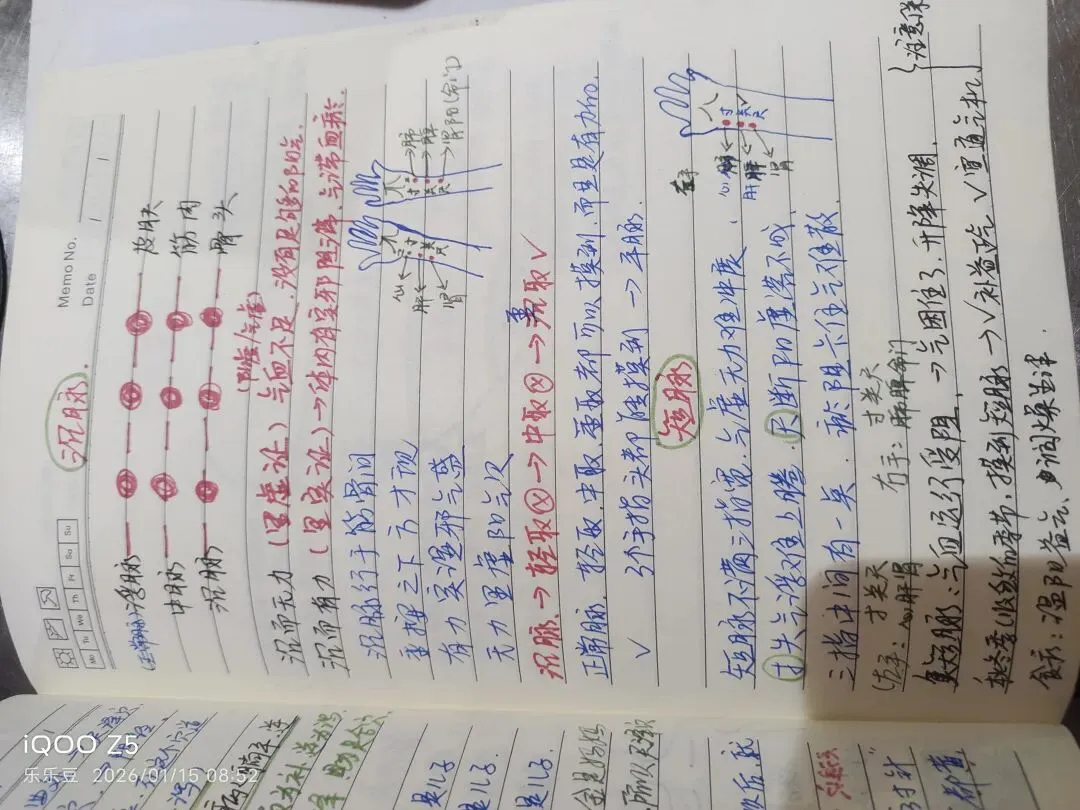 Memo No.
Date
Mo Tu We Th Fr Sa Su
沉脉.
(正常脉)浮脉 皮肤
中脉 筋肉
沉脉 骨头
(阳虚/气虚)
沉而无力 (里虚证) 气血不足.没有足够的阳气.
沉而有力 (里实证)→体内有寒邪阴三痛、气滞血瘀.
沉脉行于筋骨间
重按之下方才现
有力实证邪气盛
无力里虚阳气欠
心← 肝← 肾←
寸 关 尺
→肺 →脾 →肾阳(命门)
沉脉→轻取ⓧ→中取ⓧ→重取√
正常脉.轻取.中取.重取都可以摸到.而且是有力的.
√ 3个手指头都能摸到→平脉.
短脉
左手
心← 肝← 肾
寸 关 尺
短脉不满三指宽.气虚无力难伸展、
寸失气浮难上腾.尺断阳虚满不成
三指中间有一点.瘀阻卡住气难散.
寸关尺 寸关尺
(左手:心肝肾 右手:肺脾命门
短脉:气血运行受阻.→气困住了.升降失调.
秋冬季收敛的季节,摸到短脉→√补益正气 √宣通气机 (注意保
食疗:温阳益气、
iQOO Z5
乐乐豆 2026/01/15 08:52